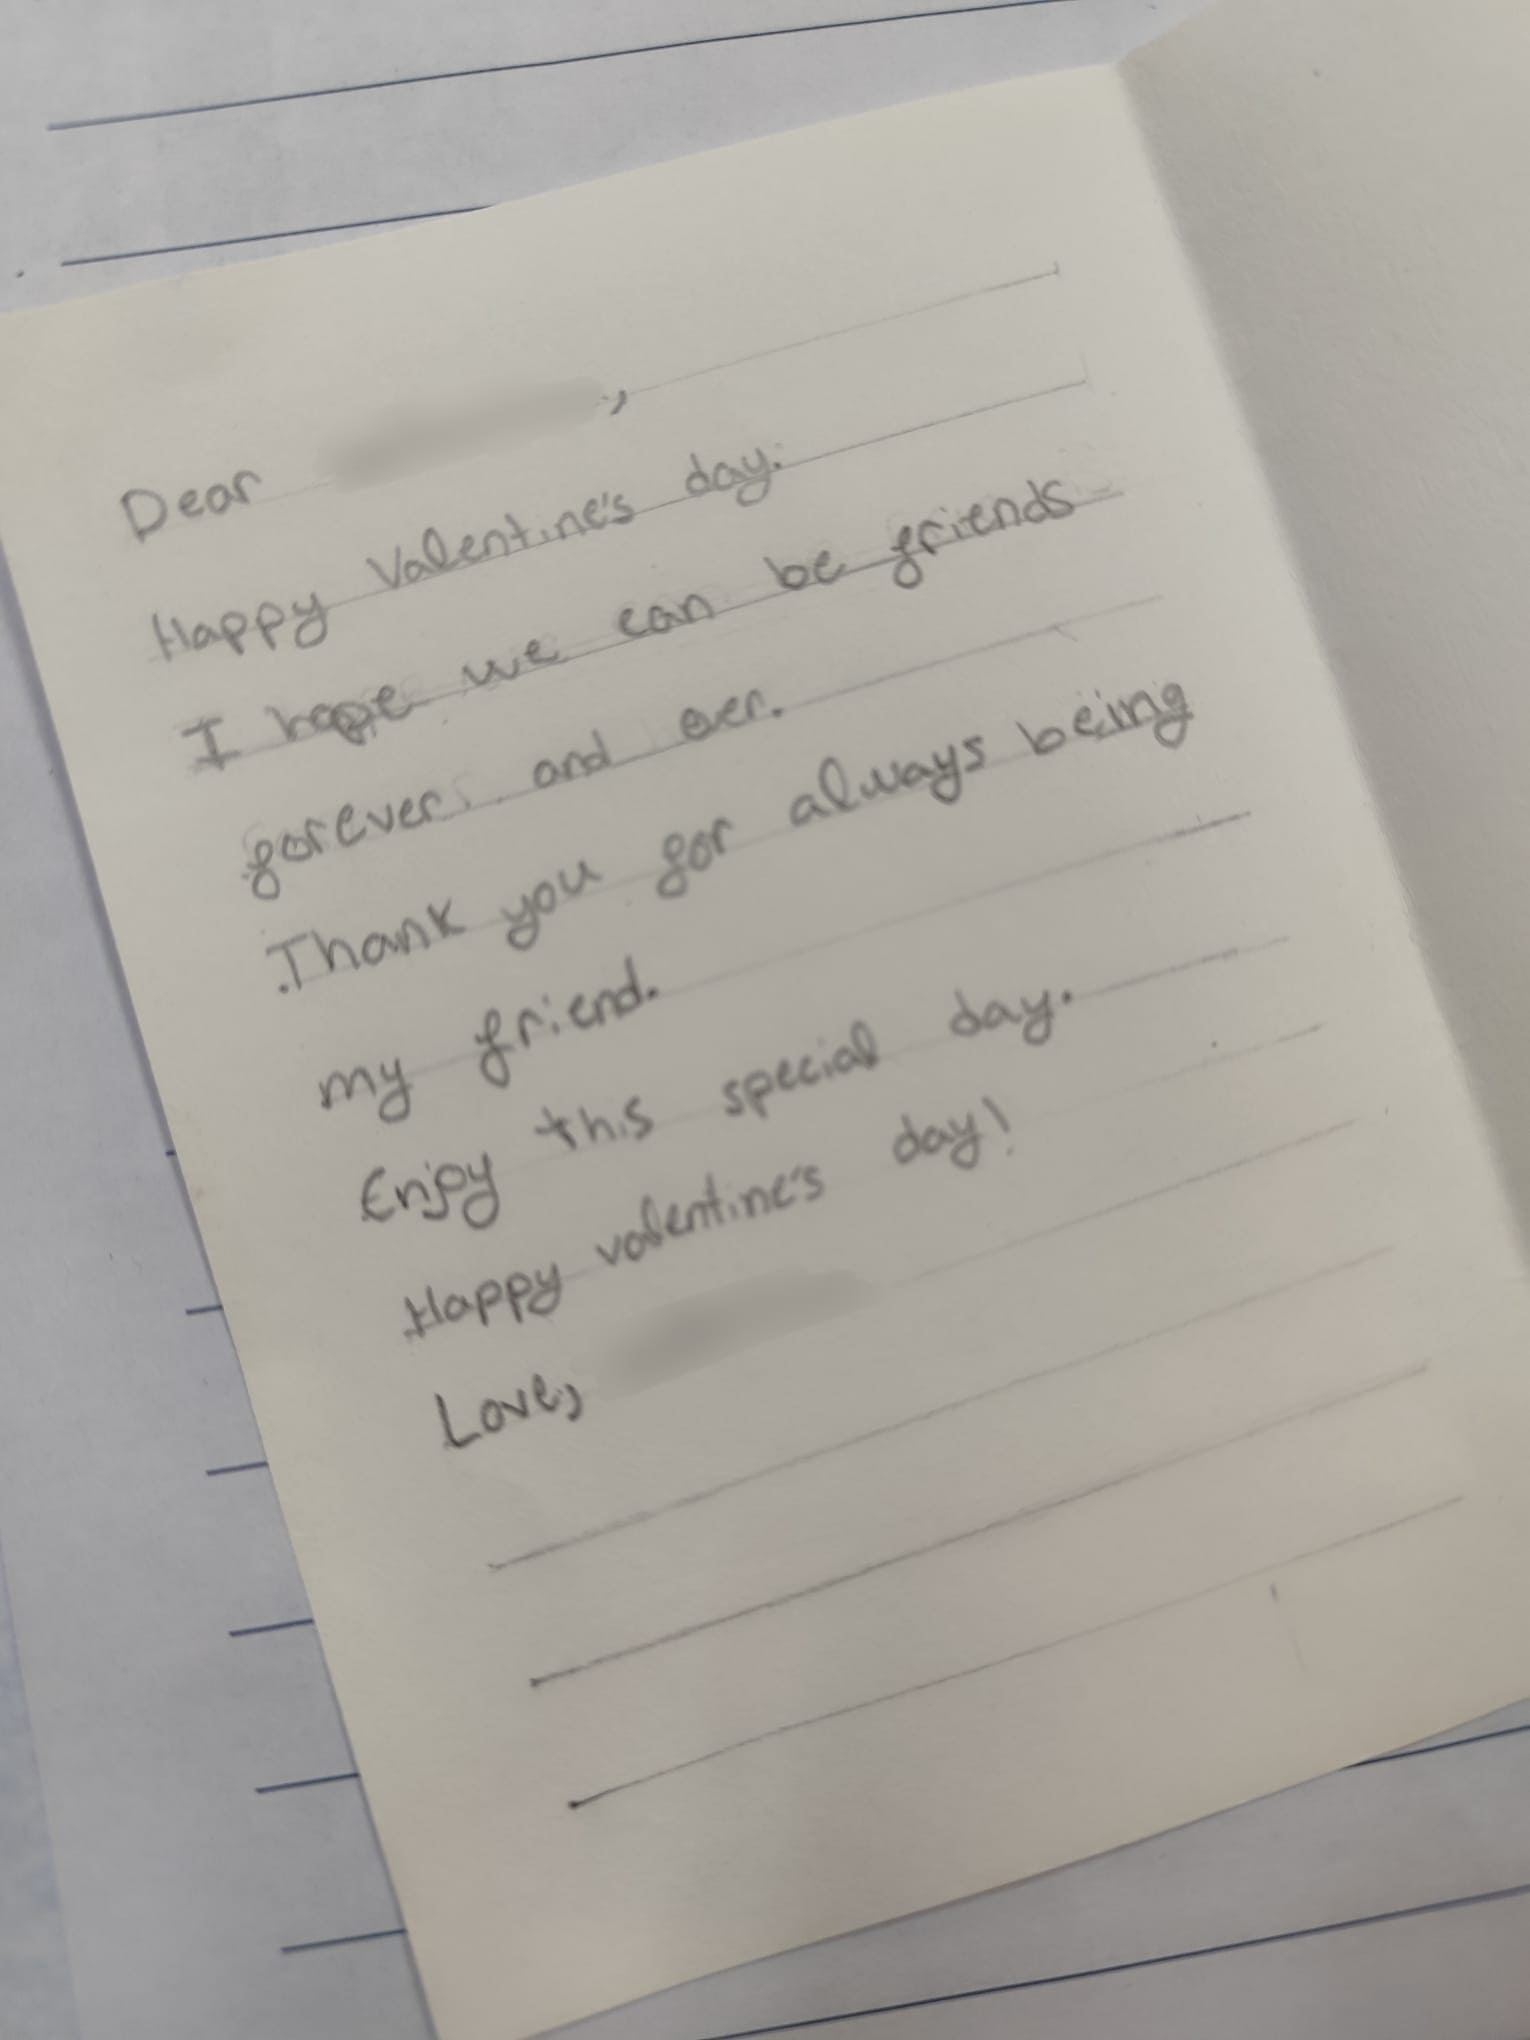 Dear ,
Happy Valentine's day.
I hope we can be friends
forever and ever.
Thank you for always being
my friend.
Enjoy this special day.
Happy valentine's day!
Love,